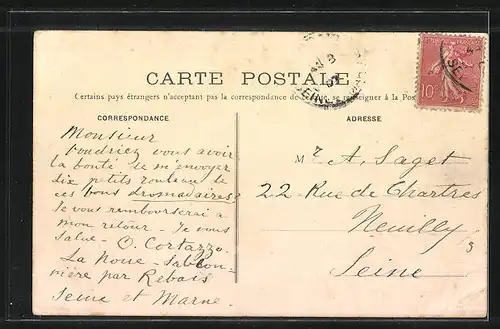 CARTE POSTALE
Certains pays étrangers n'acceptant pas la correspondance de se renseigner à la Pos
CORRESPONDANCE
ADRESSE
Monsieur
voudriez vous avoir
la bonté de m'envoyer
dix petits rouleaux de
ces bons dromadaires?
Je vous rembourserai a
mon retour - Je vous
salue - O. Cortazzo
La Noue - Sablon-
nière par Rebais
Seine et Marne.
Mr A. Saget
22 Rue de Chartres
Neuilly
Seine
10
SEINE